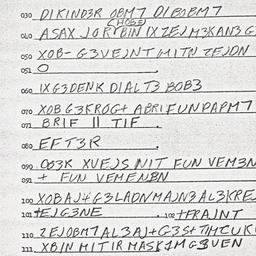 030 DIKIND3R OBM7 DIBOBM7
(HOSE)
040 ASAX JORBIN IX ZEJ M3KAN3 G
050 XOB- G3VEJNT MITN ZEJDN
051 O
060 IX G3DENK DIALT3 BOB3
070 XOB G3KROG+ ABRIFUNPAPM7
071 BRIF || TIF.
080 EFT3R
090 OB3K XVEJS NIT FUN VEM3N
091 + FUN VEMENBN
100 XOBAJ+ G3LADNMAJN3AL3KRE
101 +EJG3NE. 102 +FRAJNT
110 ZEJOBM7AL3AJ+G3S+TMCUK
111 XBIN MITIR MASKJM G3VEN